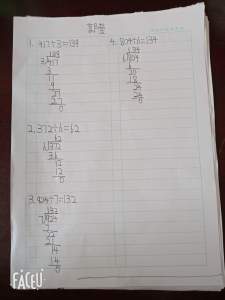 1. 417÷3=139
139
3√417
3
11
9
27
27
0
2. 372÷6=62
62
6√372
36
12
12
0
3. 924÷7=132
132
7√924
7
22
21
14
14
0
4. 804÷6=134
134
6√804
6
20
18
24
24
0
FACEU